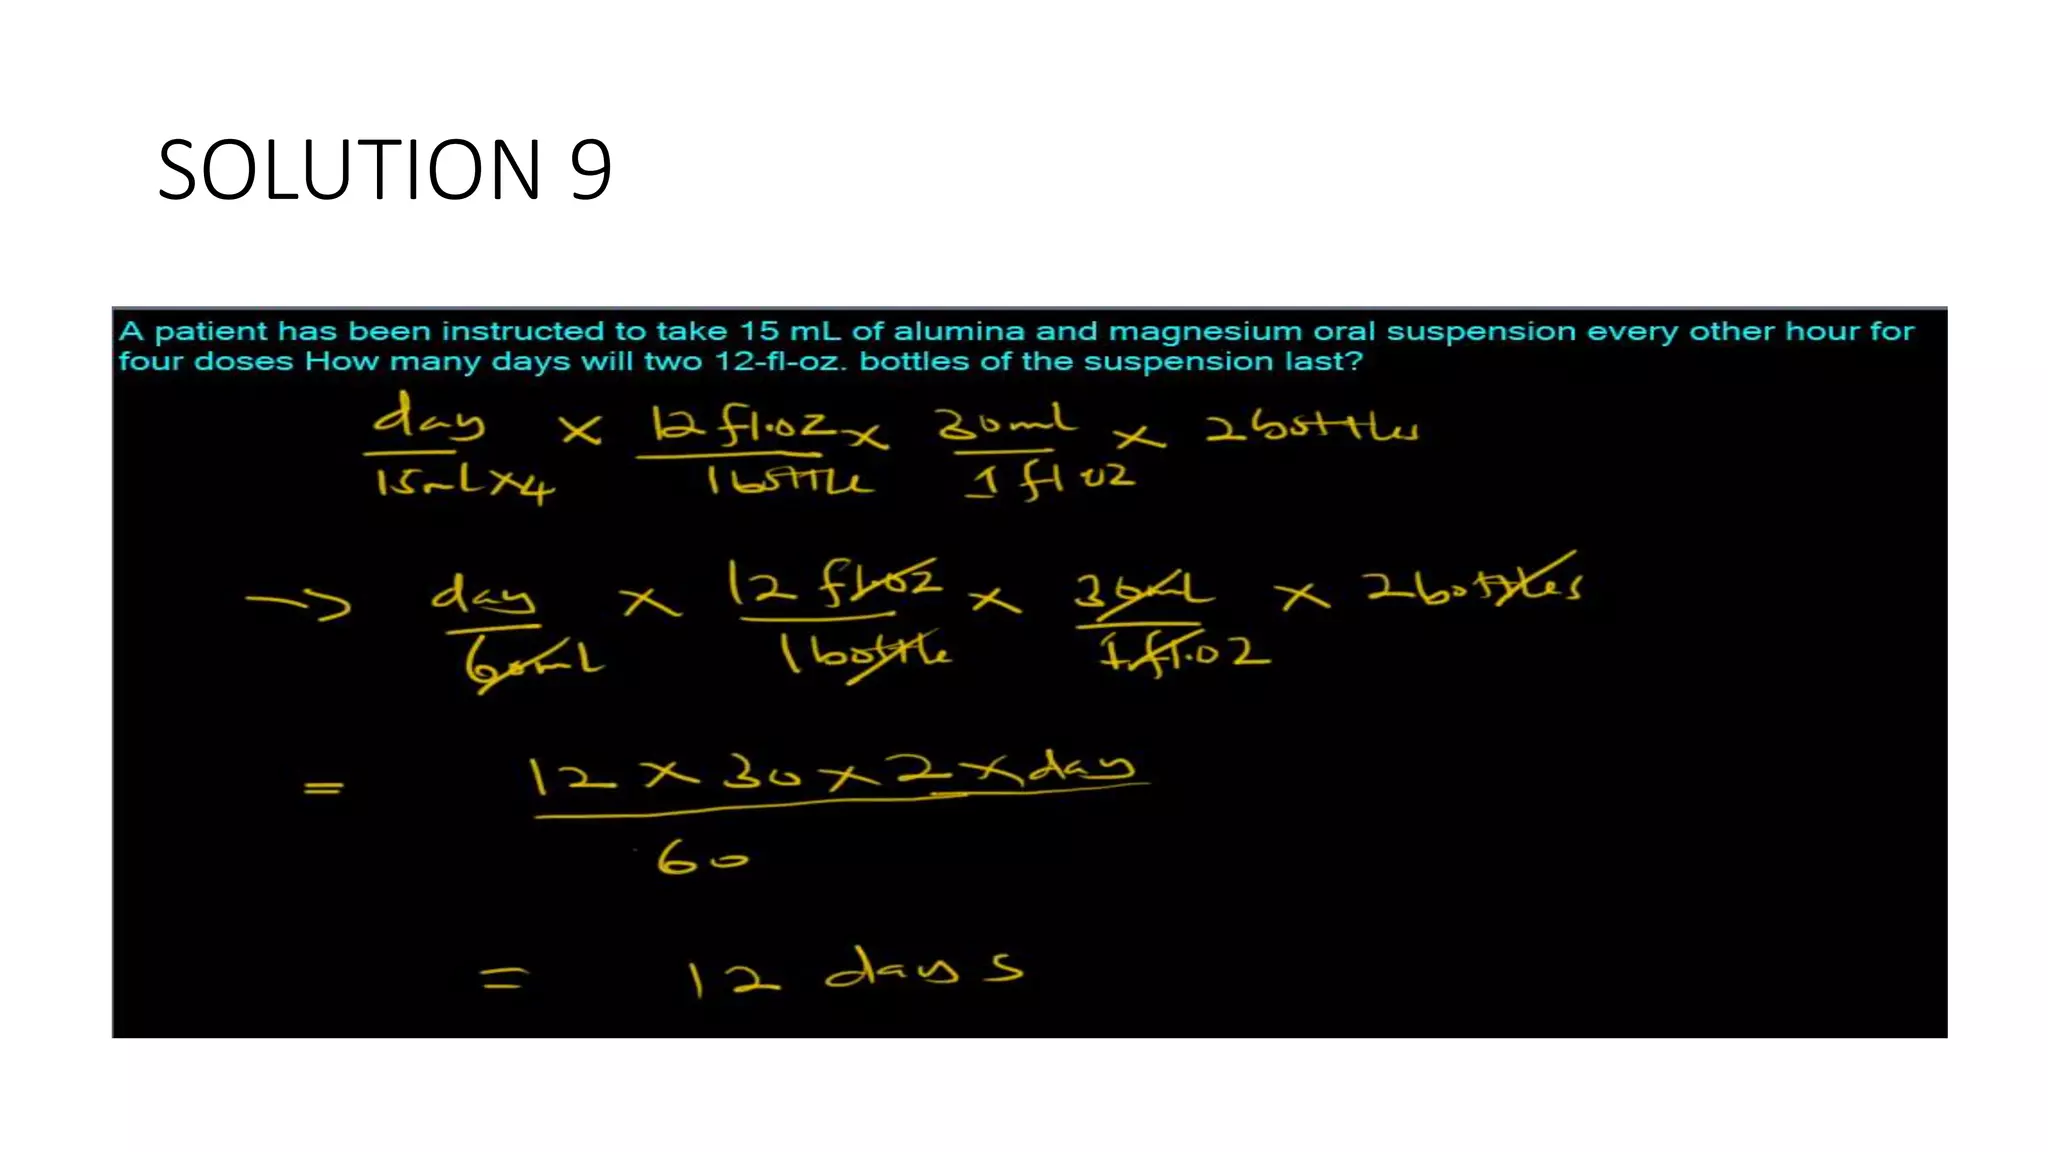 SOLUTION 9
A patient has been instructed to take 15 mL of alumina and magnesium oral suspension every other hour for
four doses How many days will two 12-fl-oz. bottles of the suspension last?
day × 12 fl.oz × 30ml × 2 bottles
15mL×4 1 bottle 1 fl oz
→ day × 12 fl.oz × 30mL × 2 bottles
60mL 1 bottle 1 fl.oz
= 12 × 30 × 2 × day
60
= 12 days